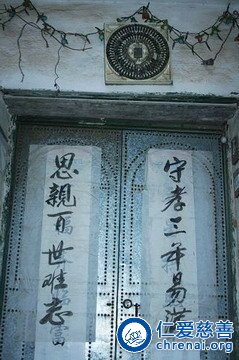 守孝三年易滿
思親百世難忘
仁爱慈善
chrenai.org